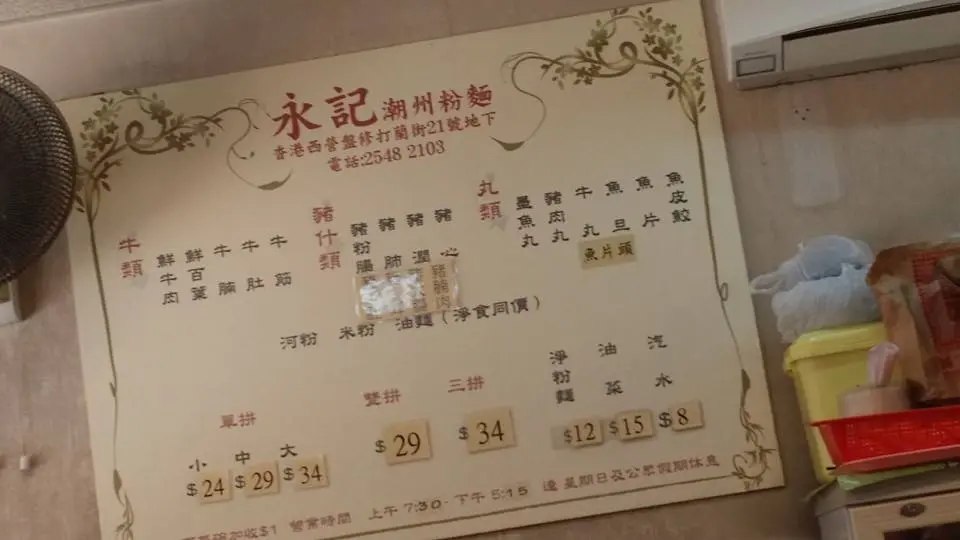 永記潮州粉麵
香港西營盤修打蘭街21號地下
電話:2548 2103
牛類
鮮牛肉
鮮百葉
牛腩
牛肚
牛筋
豬什類
豬粉腸
豬肺
豬潤
豬心
豬腩肉
丸類
墨魚丸
豬肉丸
牛丸
魚旦
魚片
魚皮餃
魚片頭
河粉 米粉 油麵(淨食同價)
單拼
小 $24
中 $29
大 $34
雙拼
$29
三拼
$34
淨粉麵 $12
油菜 $15
汽水 $8
加收$1 營業時間 上午7:30-下午5:15 逢星期日及公眾假期休息